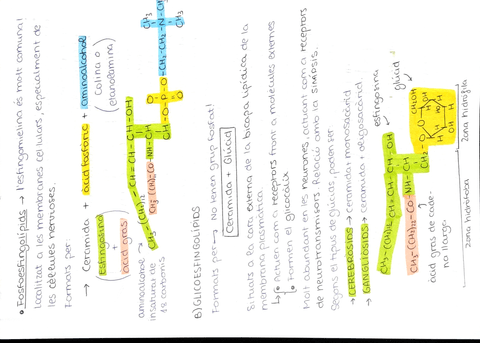 • Fosfoesfingolípids → l'esfingomielina és molt comuna!
Localitzat a les membranes cel·lulars, especialment de
les cèl·lules nervioses.
Formats per
→ Ceramida + àcid fosfòric + aminoalcohol
Esfingosina
+
àcid gras
(colina o
etanolamina)
aminoalcohol
insaturat de
18 carbonis
CH3-(CH2)12-CH=CH-CH-OH
CH3(CH2)n CO-NH-CH
CH-O-P-O-CH2-CH2-N-CH3
CH3
CH3
B) GLICOESFINGOLÍPIDS
Formats per → No tenen grup fosfat!
Ceramida + Glúcid
Situats a la cara externa de la bicapa lipídica de la
membrana plasmàtica.
↳ • Actuen com a receptors front a molècules externes
• Formen el glicocàlix
Molt abundant en les neurones, actuant com a receptors
de neurotransmisors. Relació amb la sinapsis.
Segons el tipus de glúcids, poden ser
→ CEREBRÒSIDS → ceramida + monosacàrid
→ GANGLIÒSIDS → ceramida + oligosacàrid
esfingosina
glúcid
CH3-(CH2)12-CH=CH-CH-OH
CH3-(CH2)n-CO-NH-CH
CH2-O
CH2OH
àcid gras de cade-
na llarga
zona hidròfoba
zona hidròfila